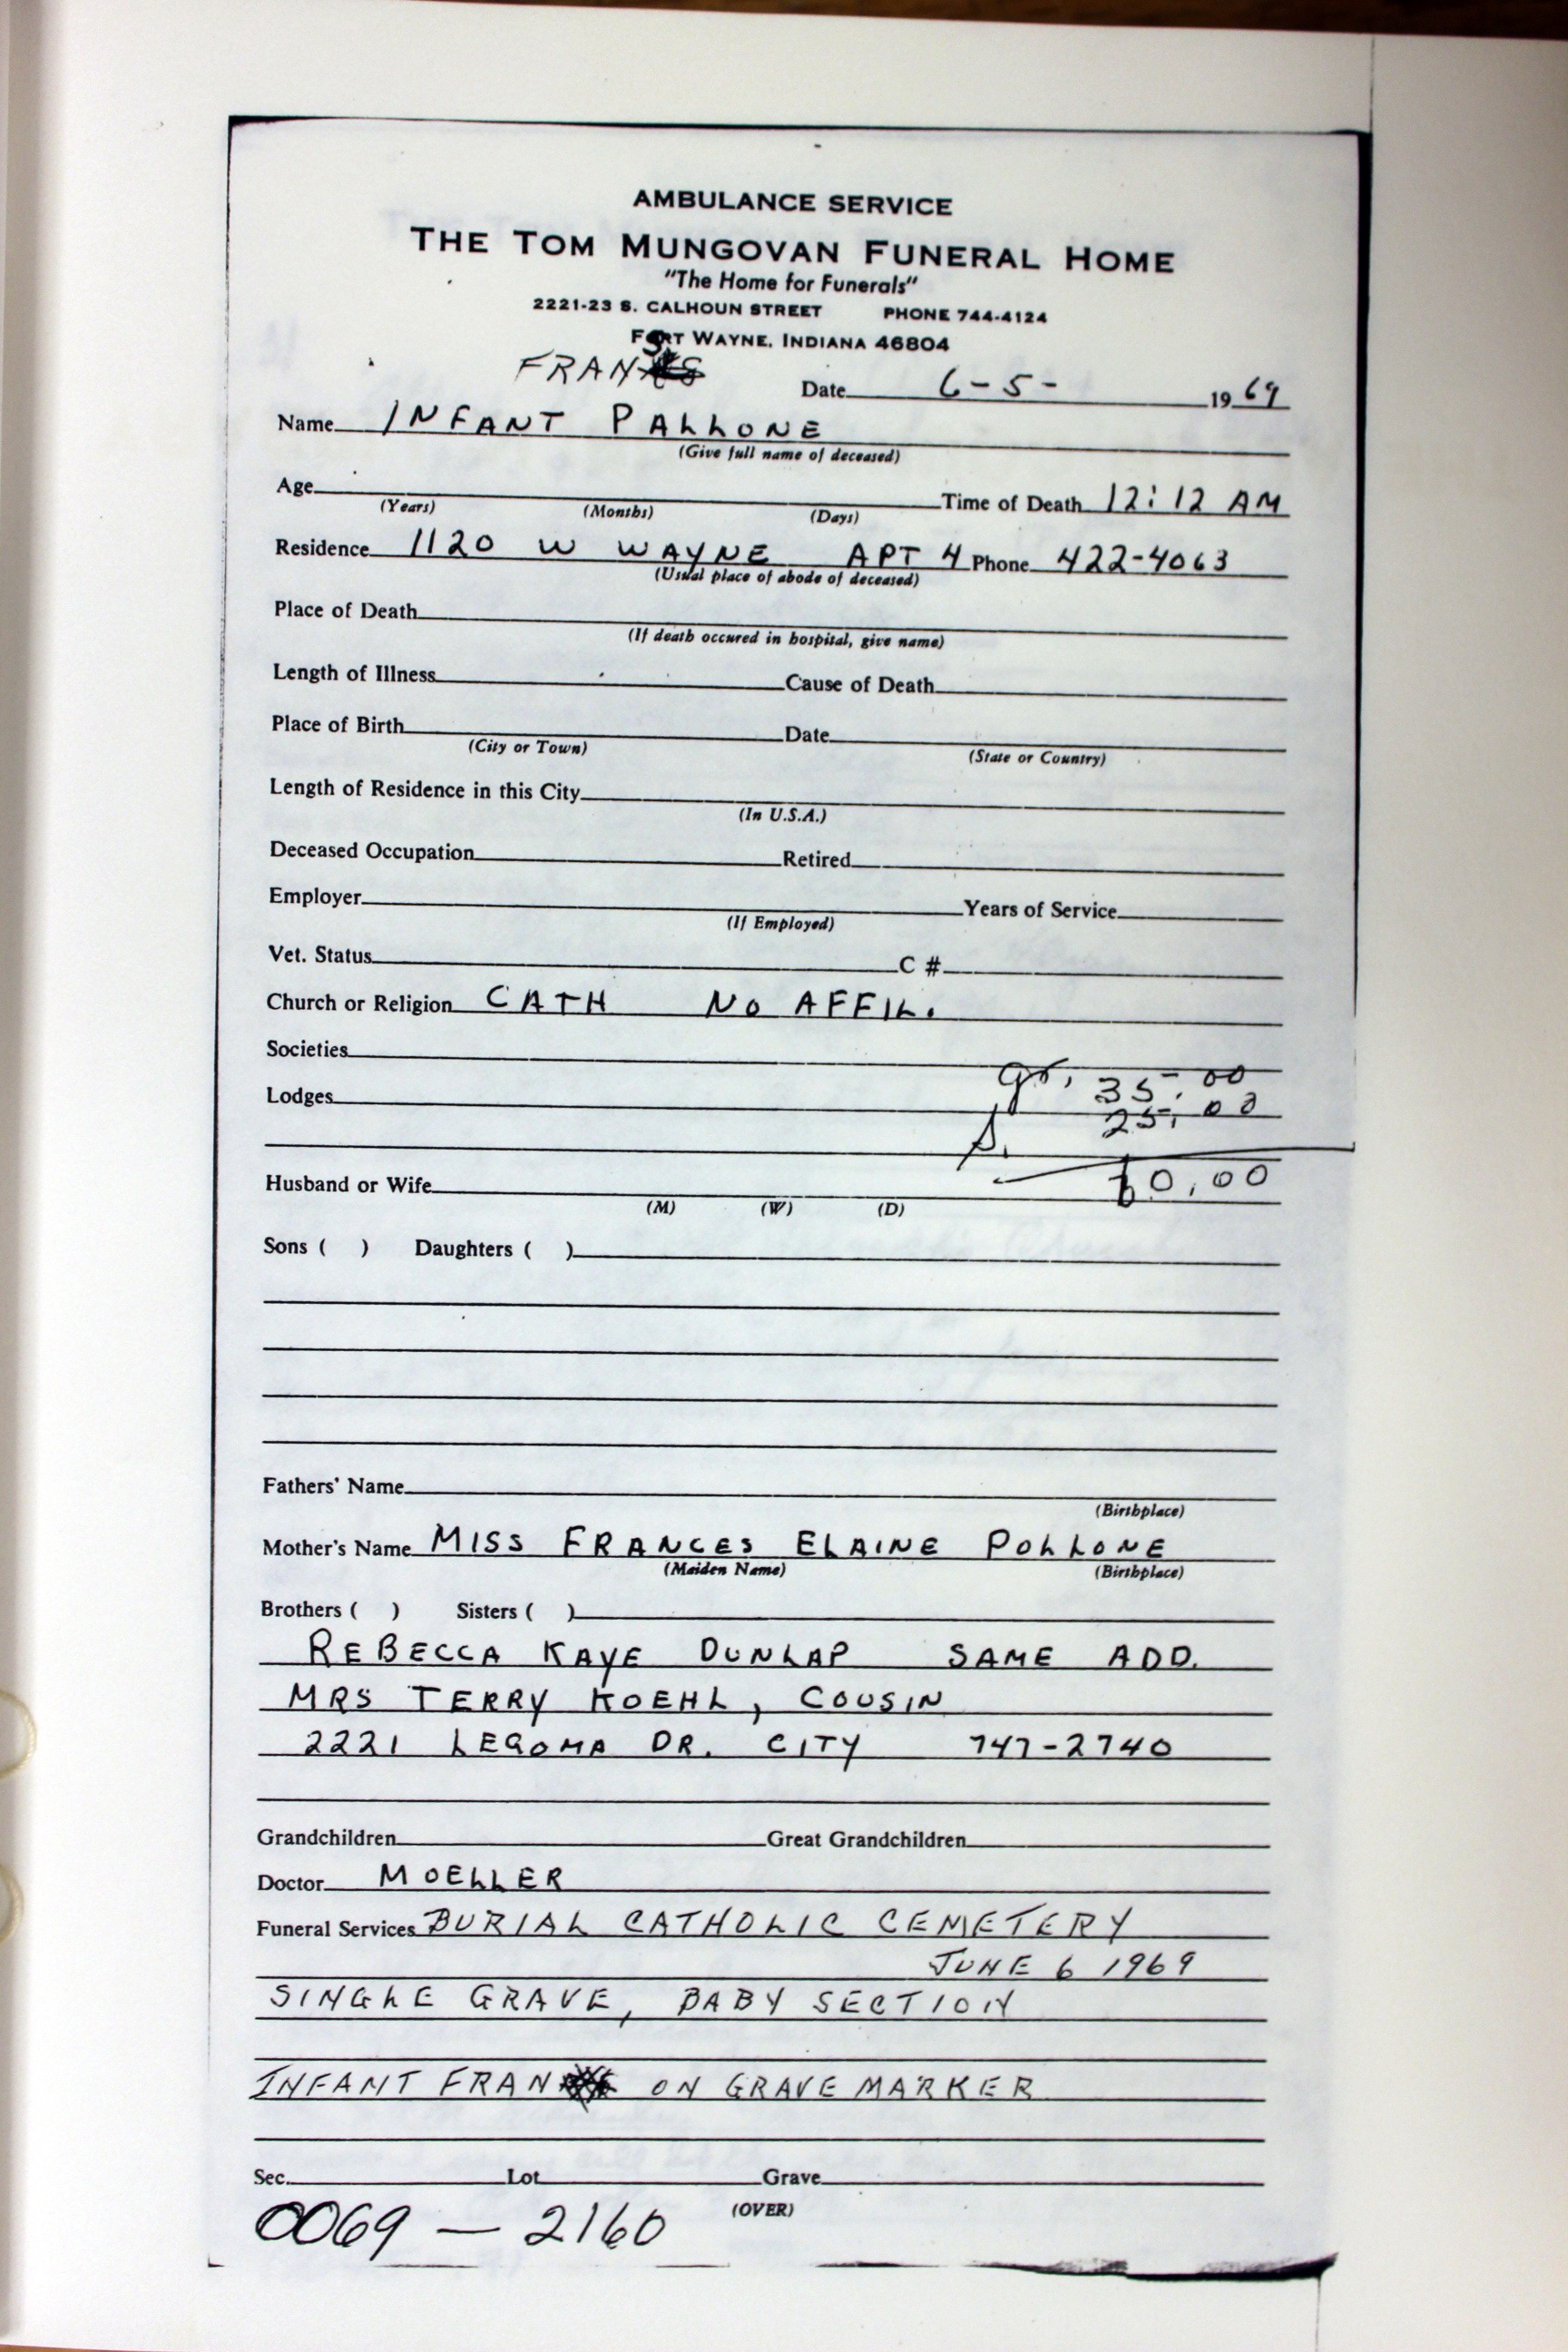 AMBULANCE SERVICE
THE TOM MUNGOVAN FUNERAL HOME
"The Home for Funerals"
2221-23 S. CALHOUN STREET PHONE 744-4124
FORT WAYNE, INDIANA 46804
FRAN
Date 6-5- 1969
Name INFANT PALLONE
(Give full name of deceased)
Age Time of Death 12:12 AM
(Years) (Months) (Days)
Residence 1120 W WAYNE APT 4 Phone 422-4063
(Usual place of abode of deceased)
Place of Death
(If death occured in hospital, give name)
Length of Illness Cause of Death
Place of Birth Date
(City or Town) (State or Country)
Length of Residence in this City
(In U.S.A.)
Deceased Occupation Retired
Employer Years of Service
(If Employed)
Vet. Status C #
Church or Religion CATH NO AFFIL.
Societies
gr. 35.00
Lodges
25.00
Husband or Wife 60.00
(M) (W) (D)
Sons ( ) Daughters ( )
Fathers' Name
(Birthplace)
Mother's Name MISS FRANCES ELAINE POLLONE
(Maiden Name) (Birthplace)
Brothers ( ) Sisters ( )
REBECCA KAYE DUNLAP SAME ADD.
MRS TERRY KOEHL, COUSIN
2221 LEGOMA DR. CITY 747-2740
Grandchildren Great Grandchildren
Doctor MOELLER
Funeral Services BURIAL CATHOLIC CEMETERY
JUNE 6 1969
SINGLE GRAVE, BABY SECTION
INFANT FRAN ON GRAVE MARKER
Sec. Lot Grave
(OVER)
0069 — 2160